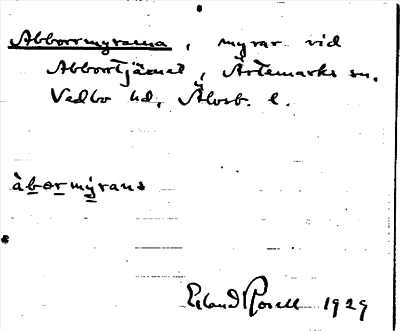 Abborrmyrarna, myrar vid
Abborrtjärnet, Ärtemarks sn.
Vedbo hd, Älvsb. l.
àbormýrane
Erland Rosell 1929